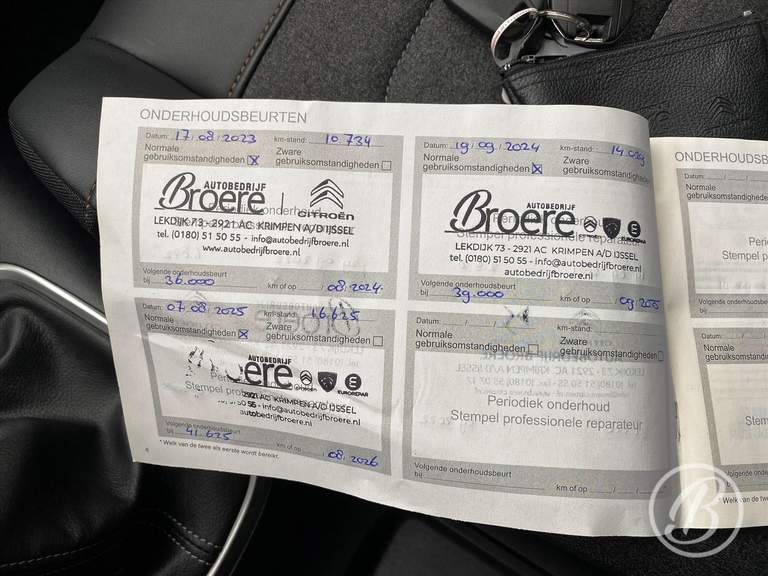 ONDERHOUDSBEURTEN
Datum: 17/08/2023 km-stand: 10.734
Normale gebruiksomstandigheden X Zware gebruiksomstandigheden
AUTOBEDRIJF
Broere CITROËN
LEKDIJK 73 - 2921 AC KRIMPEN A/D IJSSEL
tel. (0180) 51 50 55 - info@autobedrijfbroere.nl
www.autobedrijfbroere.nl
Volgende onderhoudsbeurt
bij 36.000 km of op / 08/2024
Datum: 19/09/2024 km-stand: 14.029
Normale gebruiksomstandigheden X Zware gebruiksomstandigheden
AUTOBEDRIJF
Broere EUROREPAR
LEKDIJK 73 - 2921 AC KRIMPEN A/D IJSSEL
tel. (0180) 51 50 55 - info@autobedrijfbroere.nl
autobedrijfbroere.nl
Volgende onderhoudsbeurt
bij 39.000 km of op / 09/2025
Datum: 07/08/2025 km-stand: 16.625
Normale gebruiksomstandigheden X Zware gebruiksomstandigheden
AUTOBEDRIJF
oere EUROREPAR
2921 AC KRIMPEN A/D IJSSEL
51 50 55 - info@autobedrijfbroere.nl
autobedrijfbroere.nl
Volgende onderhoudsbeurt
bij 41.625 km of op / 08/2026
Datum: / / km-stand:
Normale gebruiksomstandigheden Zware gebruiksomstandigheden
Periodiek onderhoud
Stempel professionele reparateur
Volgende onderhoudsbeurt
bij km of op / /
* Welk van de twee als eerste wordt bereikt.
ONDERHOUDSB
Datum: /
Normale
gebruiksomstandigheden
Period
Stempel prof
Volgende onderhoudsbeurt
bij
Datum: /
Normale
gebruiksomstandigheden
Volgende onderhoudsbeurt
bij
* Welk van de twe
B